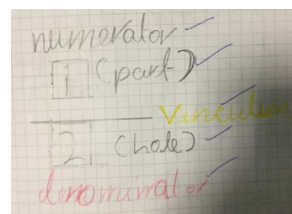 numerator
1 (part)
Vinculum
2 (hole)
denominator